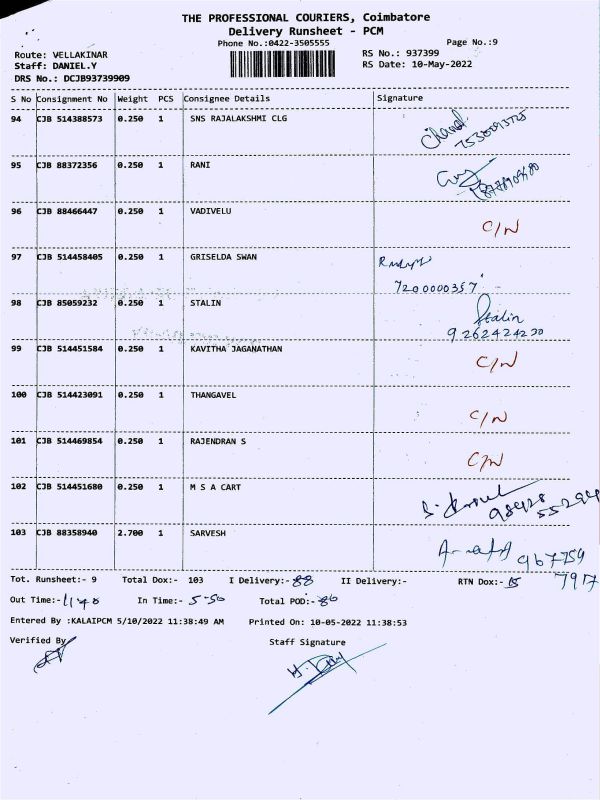 THE PROFESSIONAL COURIERS, Coimbatore
Delivery Runsheet - PCM
Phone No.:0422-3505555
Page No.:9
Route: VELLAKINAR
RS No.: 937399
Staff: DANIEL.Y
RS Date: 10-May-2022
DRS No.: DCJB93739909
S No Consignment No Weight PCS Consignee Details Signature
94 CJB 514388573 0.250 1 SNS RAJALAKSHMI CLG
95 CJB 88372356 0.250 1 RANI
96 CJB 88466447 0.250 1 VADIVELU C/N
97 CJB 514458405 0.250 1 GRISELDA SWAN
7200000357
98 CJB 85059232 0.250 1 STALIN Stalin
9262424230
99 CJB 514451584 0.250 1 KAVITHA JAGANATHAN C/N
100 CJB 514423091 0.250 1 THANGAVEL C/N
101 CJB 514469854 0.250 1 RAJENDRAN S C/N
102 CJB 514451680 0.250 1 M S A CART
103 CJB 88358940 2.700 1 SARVESH
967759
7917
Tot. Runsheet:- 9 Total Dox:- 103 I Delivery:- 88 II Delivery:- RTN Dox:- 15
Out Time:- 11.40 In Time:- 5-50 Total POD:- 86
Entered By :KALAIPCM 5/10/2022 11:38:49 AM Printed On: 10-05-2022 11:38:53
Verified By Staff Signature